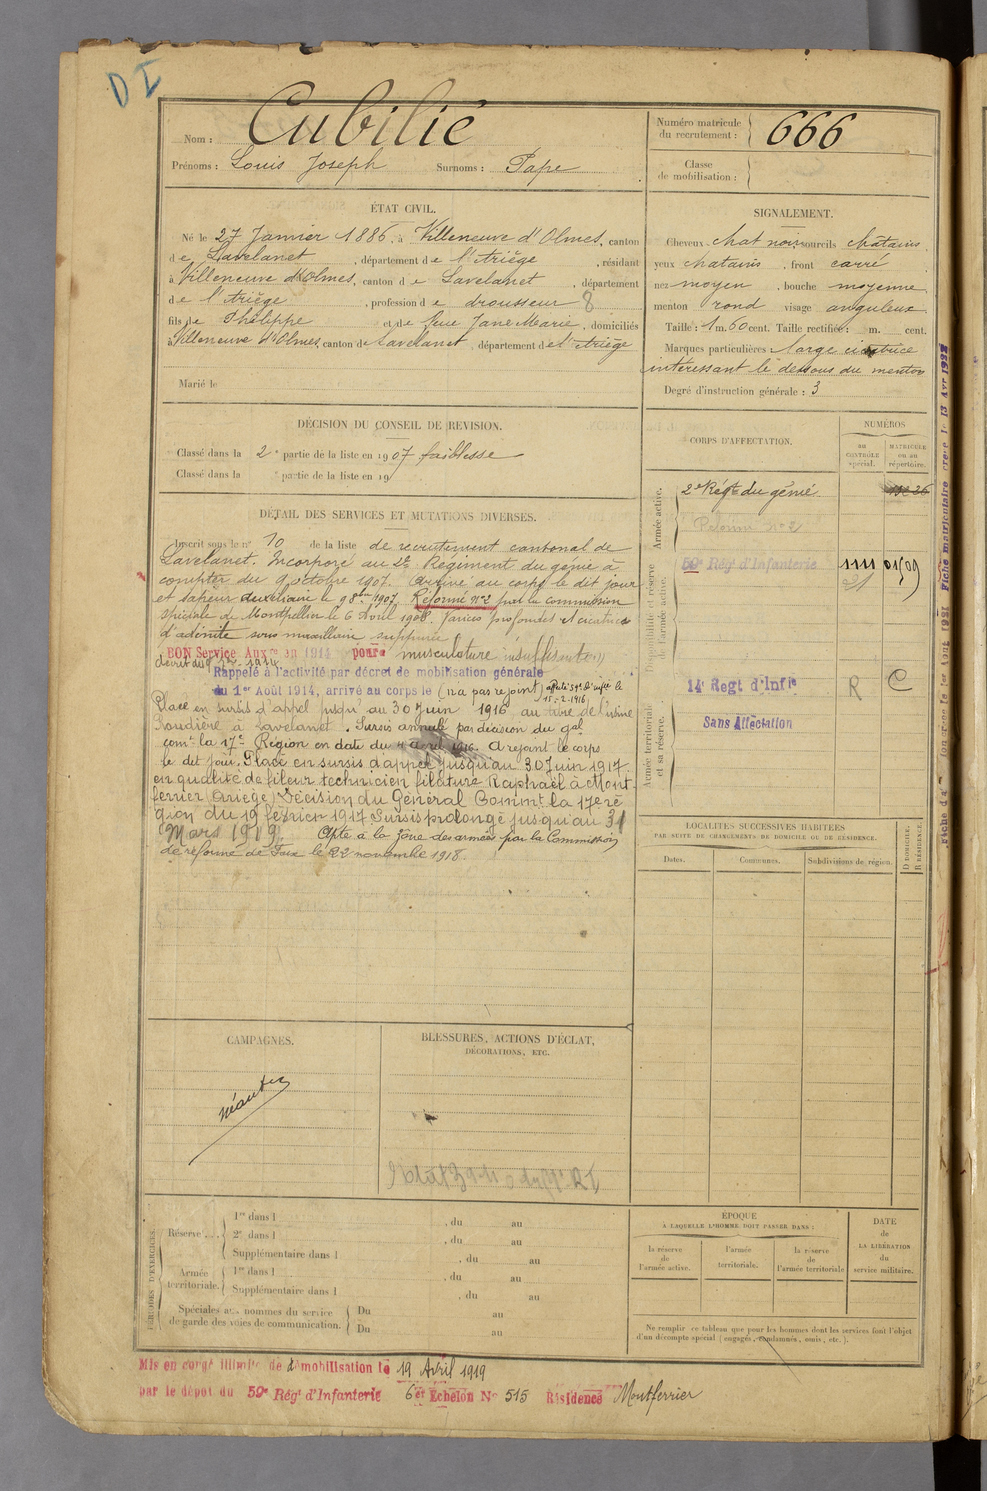 D I
Nom : Cubilié
Prénoms : Louis Joseph Surnoms : Pape
Numéro matricule du recrutement : 666
Classe de mobilisation :
ÉTAT CIVIL.
Né le 27 Janvier 1886, à Villeneuve d'Olmes, canton
de Lavelanet, département de l'Ariège, résidant
à Villeneuve d'Olmes, canton de Lavelanet, département
de l'Ariège, profession de drousseur 8
fils de Philippe et de Jane Marie, domiciliés
à Villeneuve d'Olmes canton de Lavelanet, département de l'Ariège
Marié le
SIGNALEMENT.
Cheveux chat noirs sourcils châtains
yeux chatains, front carré
nez moyen, bouche moyenne
menton rond visage anguleux
Taille : 1 m. 60 cent. Taille rectifiée : m. cent.
Marques particulières : large cicatrice
intéressant le dessous du menton
Degré d'instruction générale : 3
DÉCISION DU CONSEIL DE REVISION.
Classé dans la 2e partie de la liste en 1907 faiblesse
Classé dans la e partie de la liste en 19
DÉTAIL DES SERVICES ET MUTATIONS DIVERSES.
Inscrit sous le n° 10 de la liste de recrutement cantonal de
Lavelanet. Incorporé au 2e Régiment du génie à
compter du 9 octobre 1907. Arrivé au corps le dit jour
et sapeur auxiliaire le 9 8bre 1907. Réformé N°2 par la commission
spéciale de Montpellier le 6 Avril 1908. Varices profondes et cicatrice
d'adénite sous maxillaire suppurée
BON Service Auxre en 1914 pour musculature insuffisante
décret du 9 7bre 1914
Rappelé à l'activité par décret de mobilisation générale
du 1er Août 1914, arrivé au corps le (n'a pas rejoint) affecté 59e d'infie le
15-2-1916
Placé en sursis d'appel jusqu'au 30 Juin 1916 au titre de l'usine
Roudière à Lavelanet. Sursis annulé par décision du gal
comt la 17e Région en date du 4 avril 1916. A rejoint le corps
le dit jour. Placé en sursis d'appel jusqu'au 30 Juin 1917
en qualité de fileur technicien filature Raphaël à Mont-
ferrier (Ariège) Décision du Général Commt la 17e ré
gion du 19 février 1917 Sursis prolongé jusqu'au 31
Mars 1919. Apte à la joue des armées par la Commission
de réforme de Foix le 22 novembre 1918.
CORPS D'AFFECTATION.
NUMÉROS
au CONTRÔLE spécial.
MATRICULE ou au répertoire.
Armée active.
2e Régt du génie
Réformé n°2
Disponibilité et réserve de l'armée active.
59e Régt d'Infanterie 1111 01509
Armée territoriale et sa réserve.
14e Regt d'Infie R C
Sans Affectation
LOCALITÉS SUCCESSIVES HABITÉES
PAR SUITE DE CHANGEMENTS DE DOMICILE OU DE RÉSIDENCE.
Dates. Communes. Subdivisions de région.
D DOMICILE.
R RÉSIDENCE.
CAMPAGNES.
néant
BLESSURES, ACTIONS D'ÉCLAT,
DÉCORATIONS, ETC.
PÉRIODES D'EXERCICES
Réserve... 1re dans l , du au
2e dans l , du au
Supplémentaire dans l , du au
Armée territoriale. 1re dans l , du au
Supplémentaire dans l , du au
Spéciales aux hommes du service de garde des voies de communication. Du au
Du au
ÉPOQUE
À LAQUELLE L'HOMME DOIT PASSER DANS :
la réserve de l'armée active.
l'armée territoriale.
la réserve de l'armée territoriale
DATE de LA LIBÉRATION du service militaire.
Ne remplir ce tableau que pour les hommes dont les services font l'objet
d'un décompte spécial (engagés, condamnés, omis, etc.).
Mis en congé illimité de démobilisation le 19 Avril 1919
par le dépôt du 59e Régt d'Infanterie 6er Échelon N° 515 Résidence Montferrier